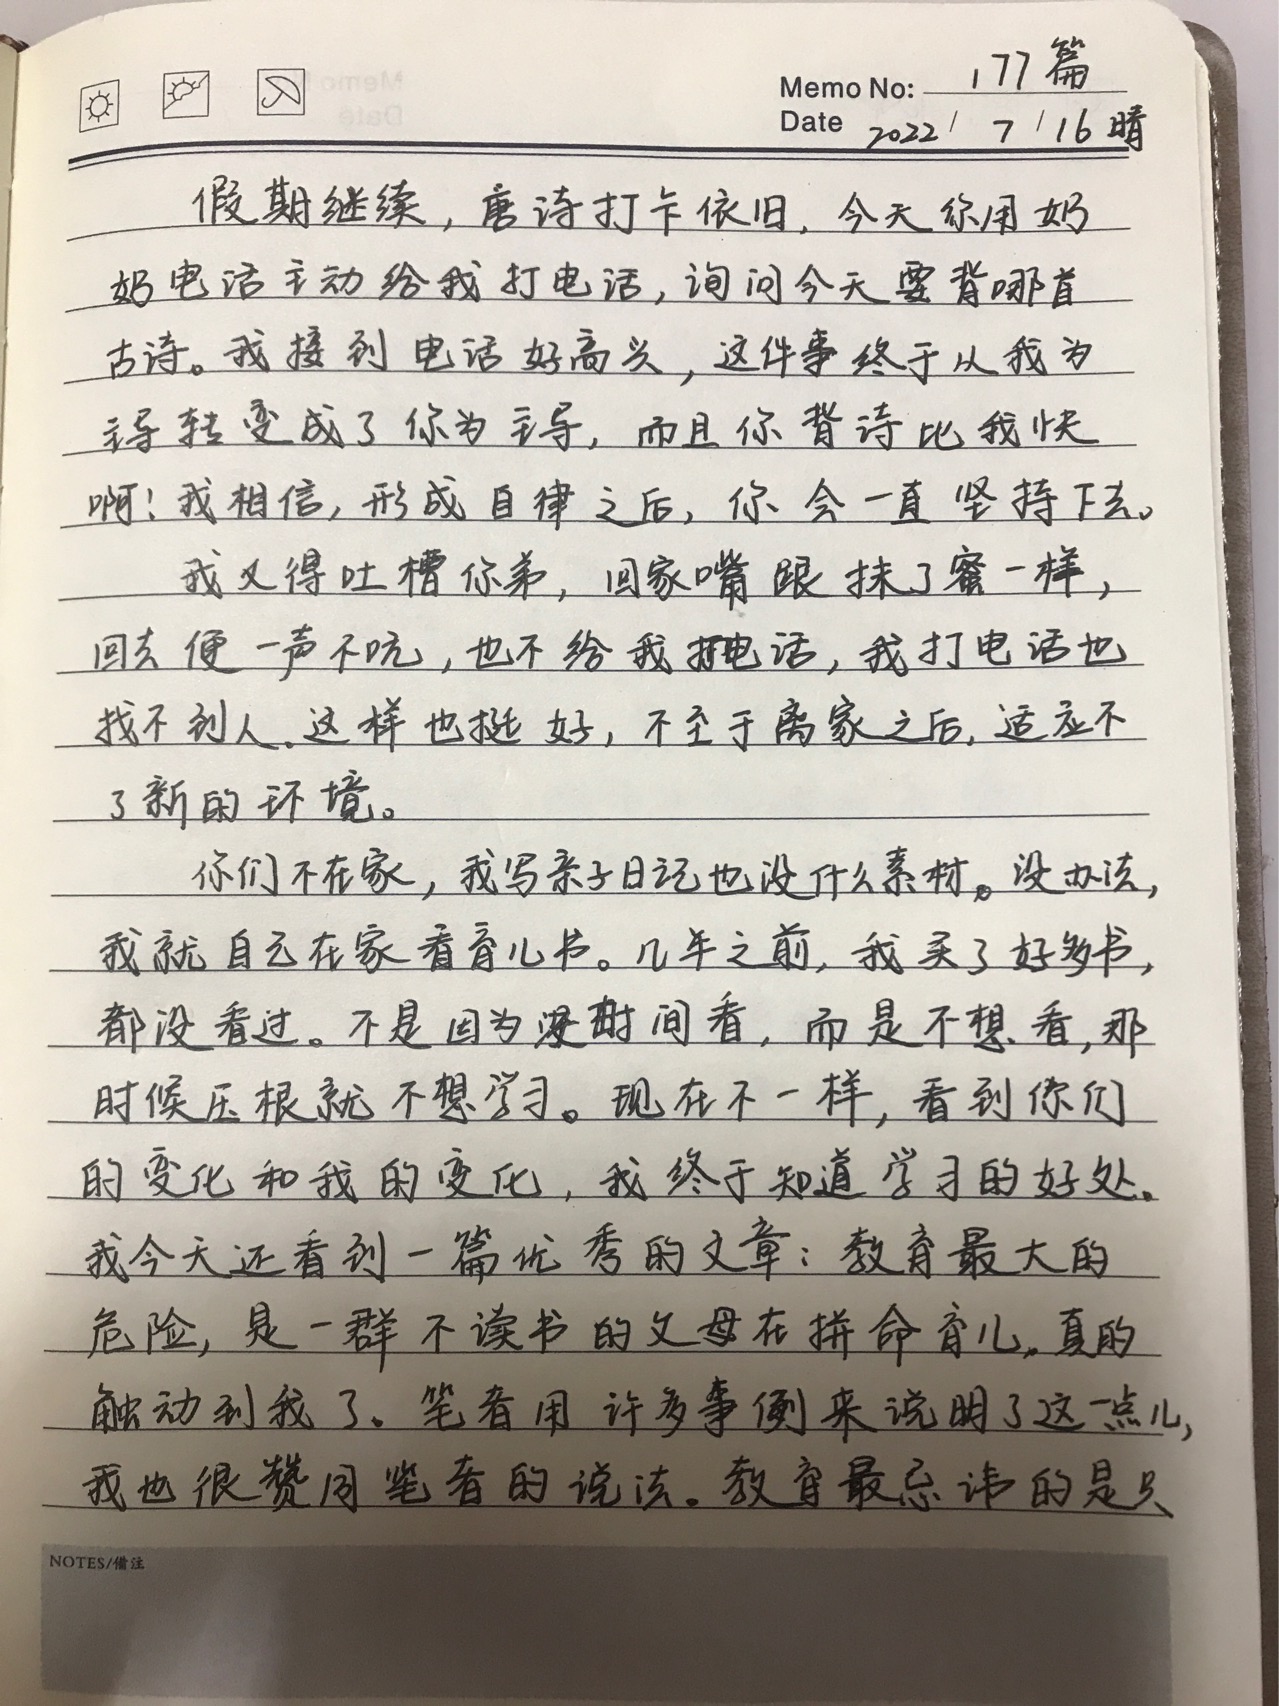 Memo No: 177篇
Date 2022/7/16晴
假期继续，唐诗打卡依旧，今天你用奶
奶电话主动给我打电话，询问今天要背哪首
古诗。我接到电话好高兴，这件事终于从我为
主导转变成了你为主导，而且你背诗比我快
啊！我相信，形成自律之后，你会一直坚持下去。
我又得吐槽你弟，回家嘴跟抹了蜜一样，
回去便一声不吭，也不给我打电话，我打电话也
找不到人。这样也挺好，不至于离家之后，适应不
了新的环境。
你们不在家，我写亲子日记也没什么素材。没办法，
我就自己在家看育儿书。几年之前，我买了好多书，
都没看过。不是因为没时间看，而是不想看，那
时候压根就不想学习。现在不一样，看到你们
的变化和我的变化，我终于知道学习的好处。
我今天还看到一篇优秀的文章：教育最大的
危险，是一群不读书的父母在拼命育儿。真的
触动到我了。笔者用许多事例来说明了这一点儿，
我也很赞同笔者的说法。教育最忌讳的是只
NOTES/備注